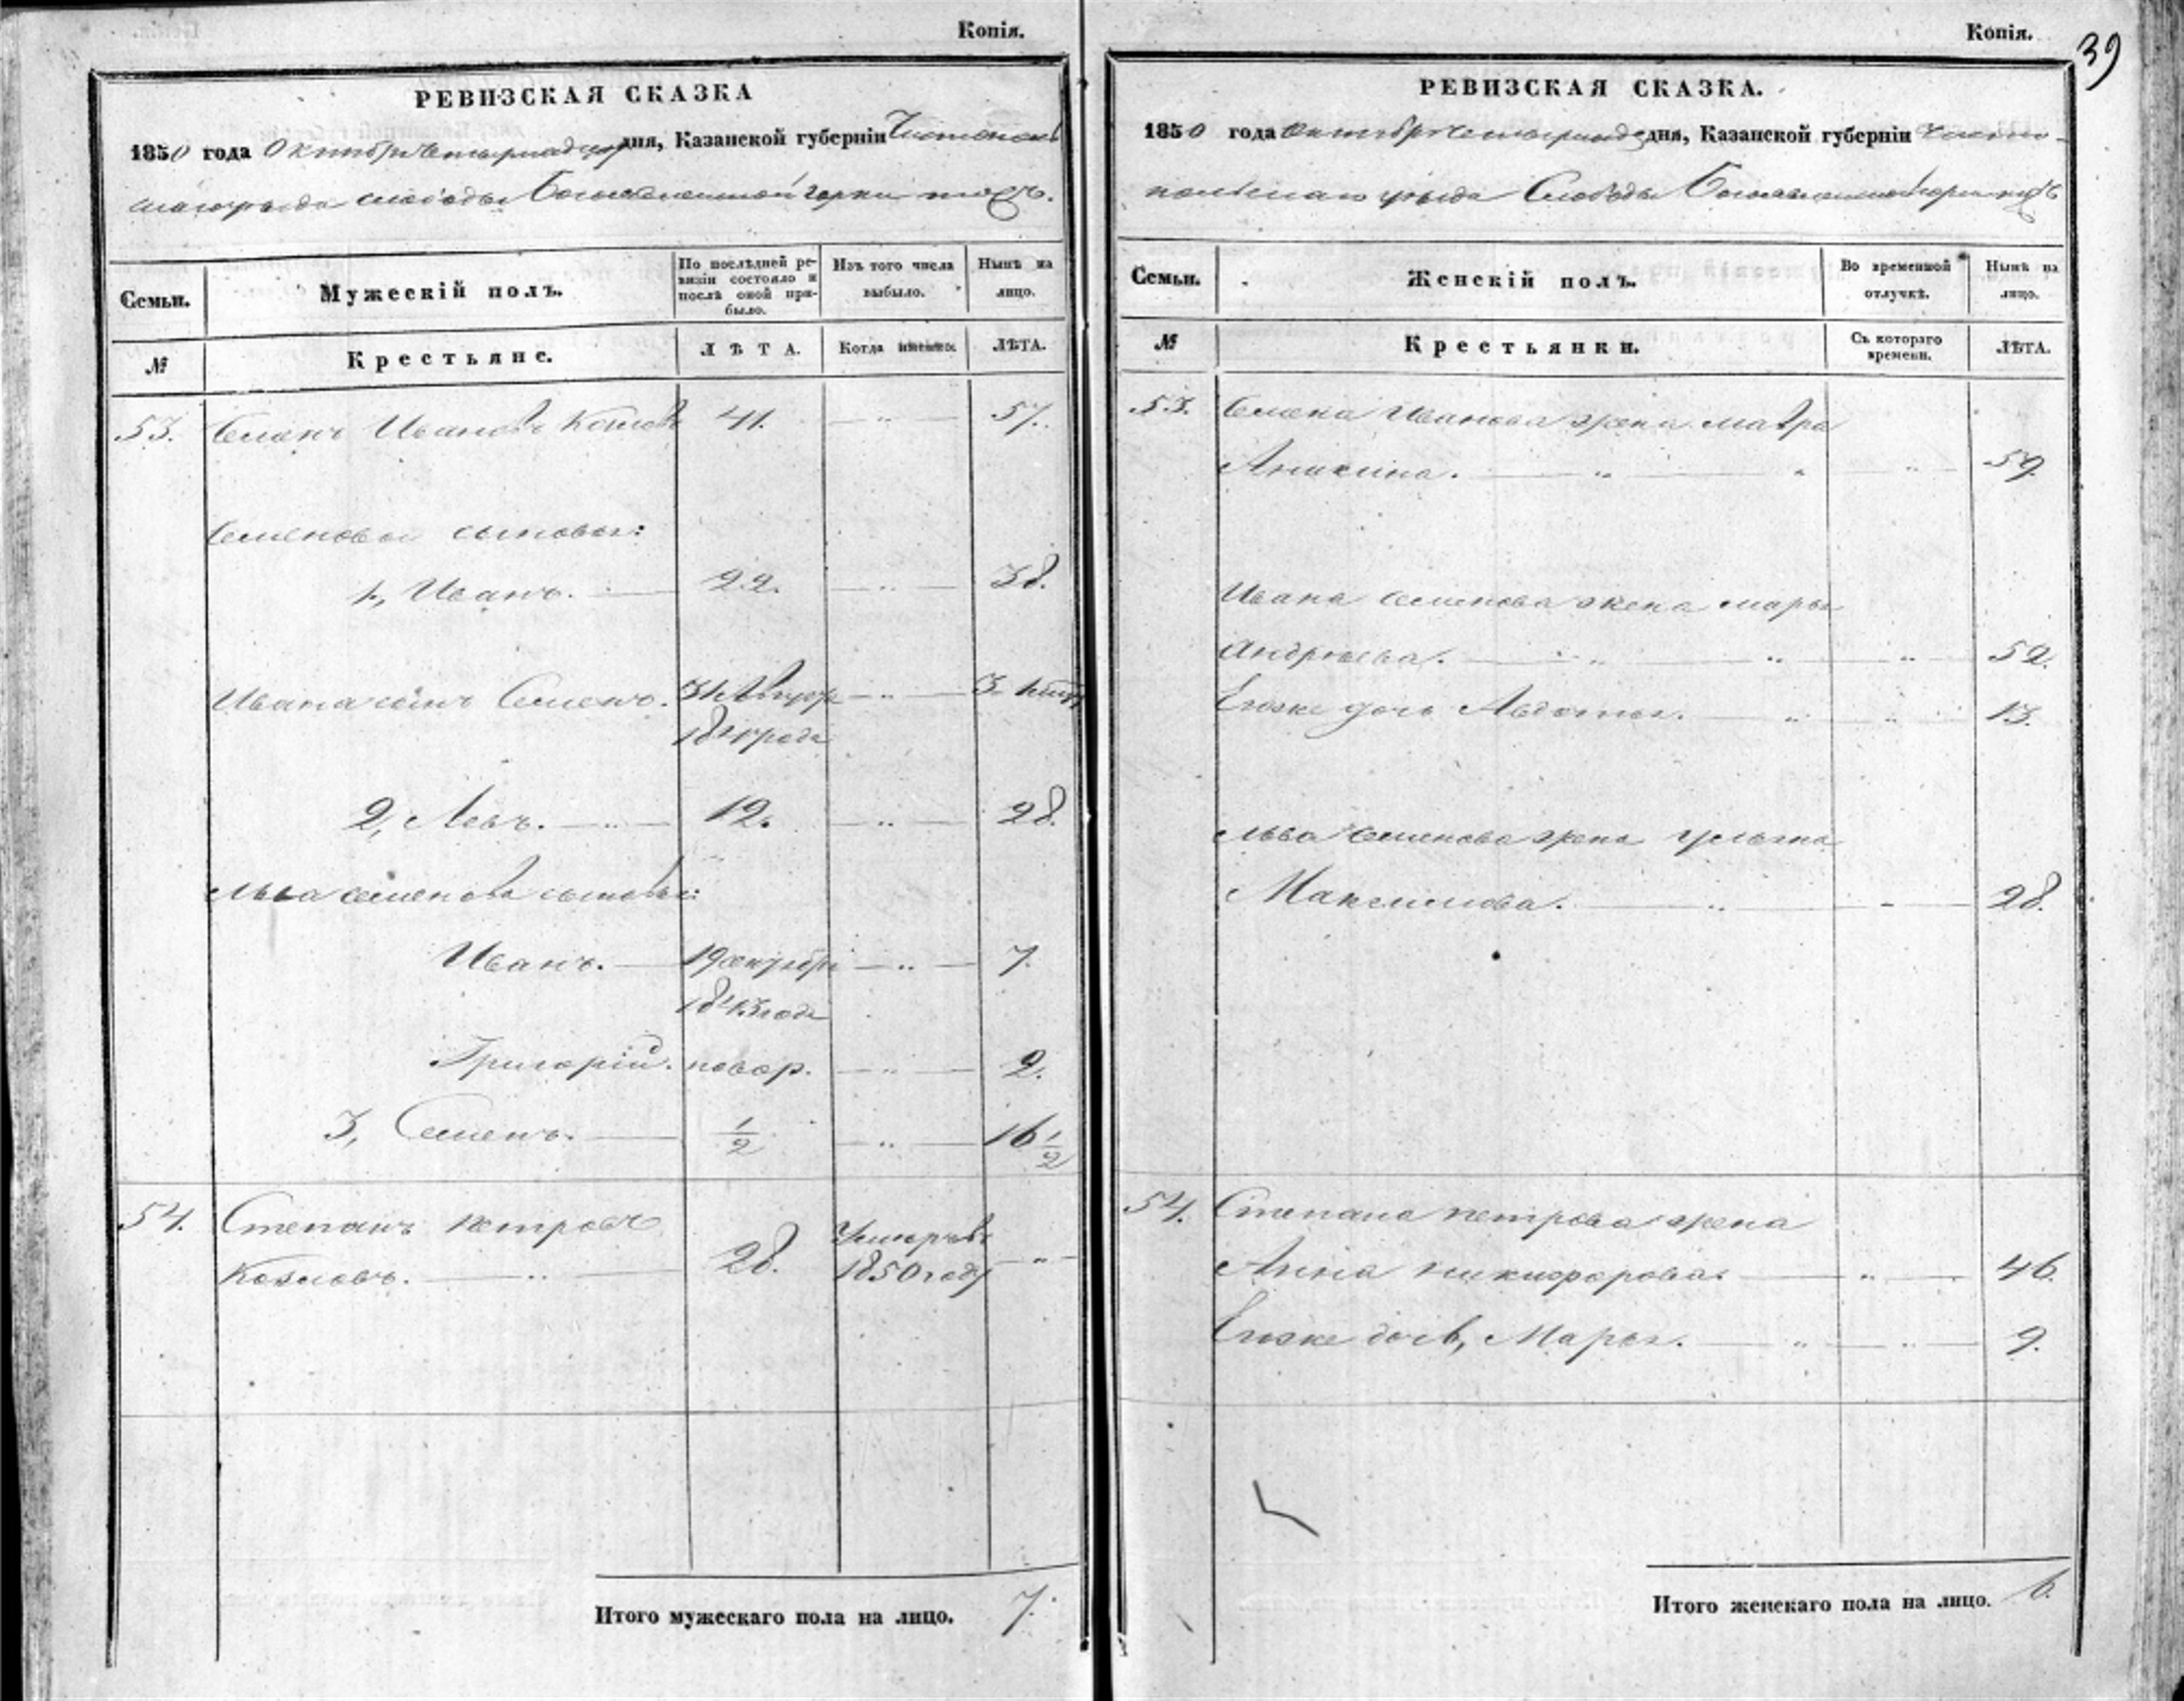 Копія.
РЕВИЗСКАЯ СКАЗКА
1850 года Октября четырнадца дня, Казанской губерніи Чистополь
скаго уѣзда слободы Богоявленской горки тожъ.
Семьи.
Мужескій полъ.
По послѣдней ре-
визіи состояло и
послѣ оной при-
было.
Изъ того числа
выбыло.
Нынѣ на
лицо.
№
Крестьяне.
ЛѢТА.
Когда именно.
ЛѢТА.
53. Семенъ Ивановъ Козловъ 41. — " — 57.
Семеновы сыновья:
1, Иванъ. — 22. — " — 38.
Ивана сынъ Семенъ. — " — 3
184 года
2, Левъ. — " — 12. — " — 28.
Льва Семенова сыновья:
Иванъ. — 19 октября — " — 7.
1843 года
Григорій. новор. — " — 2.
3, Семенъ. — 1/2 — " — 16 1/2
54. Степанъ Петровъ
Козловъ. — " — 28. Умеръ въ
1850 году — " —
Итого мужескаго пола на лицо. 7.
Копія.
39
РЕВИЗСКАЯ СКАЗКА.
1850 года Октября четырнадца дня, Казанской губерніи Чисто-
польскаго уѣзда Слободы Богоявленской горки тожъ
Семьи.
Женскій полъ.
Во временной
отлучкѣ.
Нынѣ на
лицо.
№
Крестьянки.
Съ котораго
времени.
ЛѢТА.
53. Семена Иванова жена Мавра
Аникина. — " — " — " — 59.
Ивана Семенова жена Марья
Андреева. — " — " — " — 52.
Егоже дочь Авдотья. — " — " — 13.
Льва Семенова жена Ульяна
Максимова. — " — " — 28.
54. Степана Петрова жена
Анна Никифорова. — " — 46.
Егоже дочь, Марья. — " — " — 9.
Итого женскаго пола на лицо. 6.